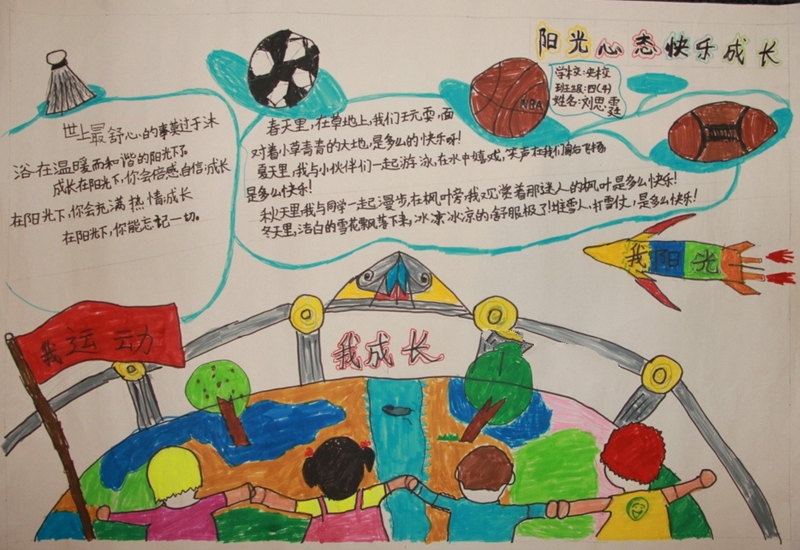 阳光心态快乐成长
学校:央校
班级:四(4)
姓名:刘思雲
世上最舒心的事莫过于沐
浴在温暖而和谐的阳光下。
成长在阳光下,你会倍感自信成长
在阳光下,你会充满热情成长
在阳光下,你能忘记一切。
春天里,在草地上,我们玩耍,面
对着小草青青的大地,是多么的快乐呀!
夏天里,我与小伙伴们一起游泳,在水中嬉戏,笑声在我们身后飞扬
是多么快乐!
秋天里我与同学一起漫步在枫叶旁,我观赏着那迷人的枫叶是多么快乐!
冬天里,洁白的雪花飘落下来,冰凉冰凉的舒服极了!堆雪人,打雪仗,是多么快乐!
NBA
我阳光
我运动
我成长